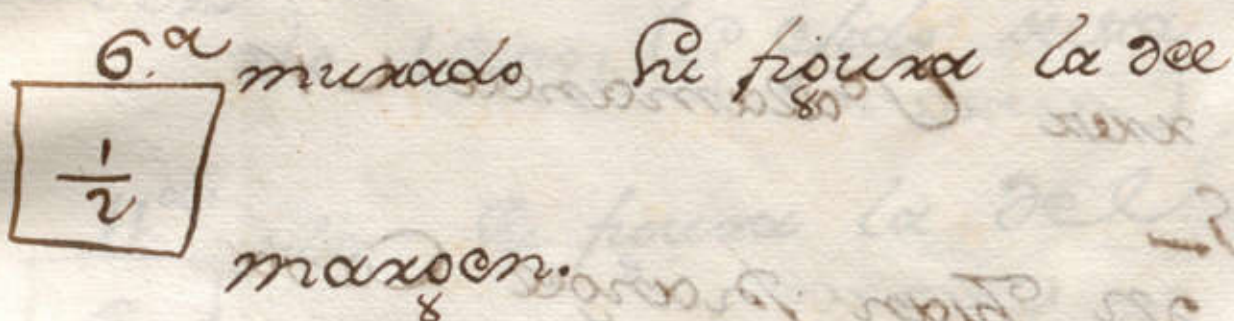 6.ª murado Su figura la del
1/2
margen.